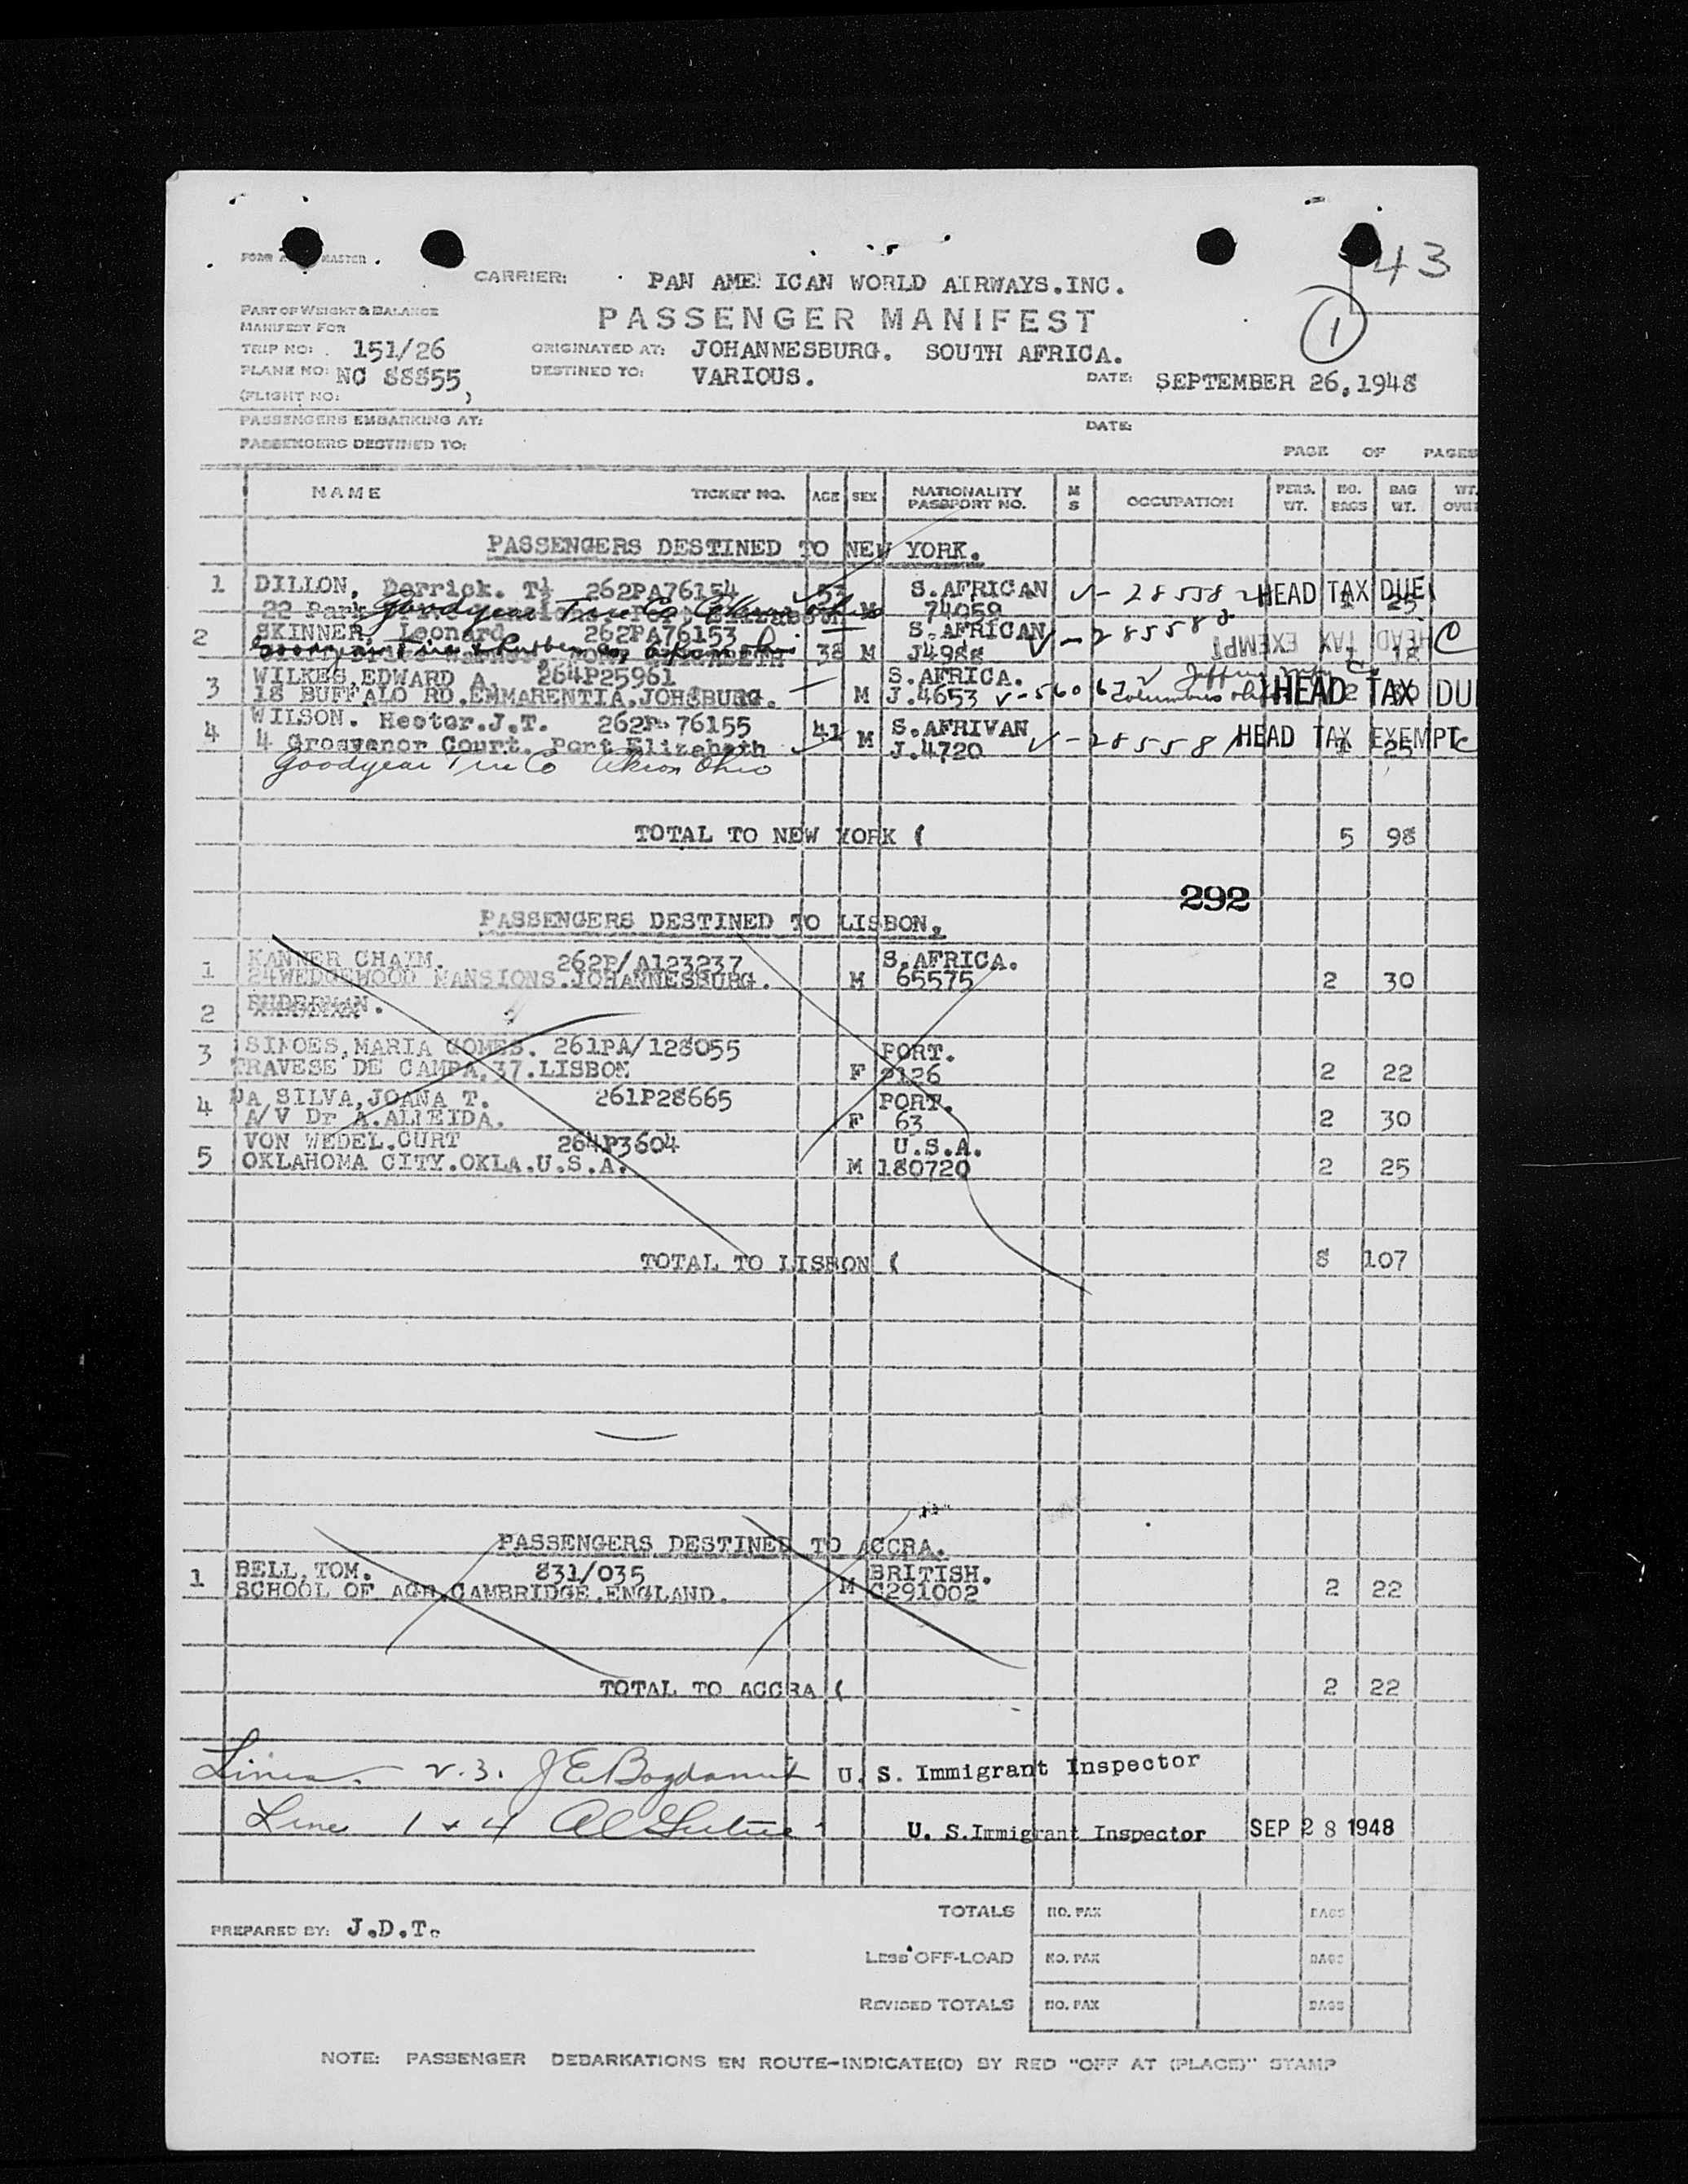 43
FORM MASTER
CARRIER: PAN AME ICAN WORLD AIRWAYS.INC.
PART OF WEIGHT & BALANCE
MANIFEST FOR
PASSENGER MANIFEST
1
TRIP NO: 151/26 ORIGINATED AT: JOHANNESBURG. SOUTH AFRICA.
PLANE NO: NC 88855 DESTINED TO: VARIOUS. DATE: SEPTEMBER 26,1948
(FLIGHT NO: )
PASSENGERS EMBARKING AT: DATE:
PASSENGERS DESTINED TO:
PAGE OF PAGES
NAME TICKET NO. AGE SEX NATIONALITY PASSPORT NO. M S OCCUPATION PERS. WT. NO. BAGS BAG WT. WT.
PASSENGERS DESTINED TO NEW YORK.
1 DILLON, Derrick. 262PA76154 S.AFRICAN V-285582 HEAD TAX DUE
22 Park Goodyear Tire Co M 74059 25
2 SKINNER, Leonard 262PA76153 S.AFRICAN V-28558 HEAD TAX EXEMPT C
Goodyear Tire & Rubber Co, Akron 38 M J4988 1 18
3 WILKES,EDWARD A. 264P25961 S.AFRICA. Jeffrey
18 BUFFALO RD.EMMARENTIA.JOHSBURG. M J.4653 V-56067 Columbus HEAD TAX DU
WILSON. Hestor.J.T. 262P 76155 41 S.AFRIVAN
4 4 Grosvenor Court. Port Elizabeth M J.4720 V-285581 HEAD TAX EXEMPT C 1 25
Goodyear Tire Co Akron Ohio
TOTAL TO NEW YORK ( 5 98
292
PASSENGERS DESTINED TO LISBON.
1 KANNER CHAIM. 262P/A123237 S.AFRICA.
24WEDGEWOOD MANSIONS.JOHANNESBURG. M 65575 2 30
2
3 SIMOES,MARIA GOMES. 261PA/128055 PORT.
TRAVESE DE CAMPA,37.LISBON F 2126 2 22
4 DA SILVA,JOANA T. 261P28665 PORT.
A/V Dr A.ALMEIDA. F 63 2 30
VON WEDEL.CURT 264P3604 U.S.A.
5 OKLAHOMA CITY.OKLA.U.S.A. M 180720 2 25
TOTAL TO LISBON ( 8 107
PASSENGERS DESTINED TO ACCRA.
1 BELL,TOM. 831/035 BRITISH.
SCHOOL OF AGR.CAMBRIDGE.ENGLAND. M C291002 2 22
TOTAL TO ACCRA ( 2 22
Lines 2.3. U. S. Immigrant Inspector
Line 1 & 4 U. S.Immigrant Inspector SEP 28 1948
TOTALS NO. PAX BAGS
PREPARED BY: J.D.T.
LESS OFF-LOAD NO. PAX BAGS
REVISED TOTALS NO. PAX BAGS
NOTE: PASSENGER DEBARKATIONS EN ROUTE-INDICATE(D) BY RED "OFF AT (PLACE)" STAMP